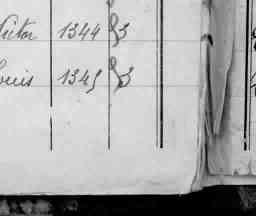 Victor 1344 83
Louis 1345 83